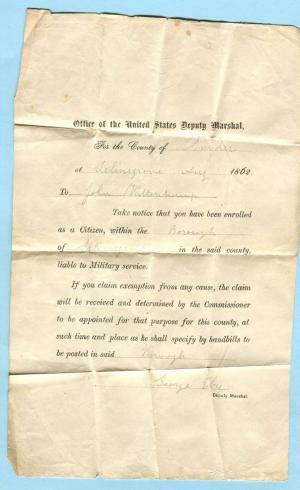 Office of the United States Deputy Marshal,
For the County of Snyder
at Selinsgrove Aug 1862
To John
Take notice that you have been enrolled
as a Citizen, within the Borough
of Selinsgrove in the said county,
liable to Military service.
If you claim exemption from any cause, the claim
will be received and determined by the Commissioner
to be appointed for that purpose for this county, at
such time and place as he shall specify by handbills
to be posted in said Borough
George Eby
Deputy Marshal.